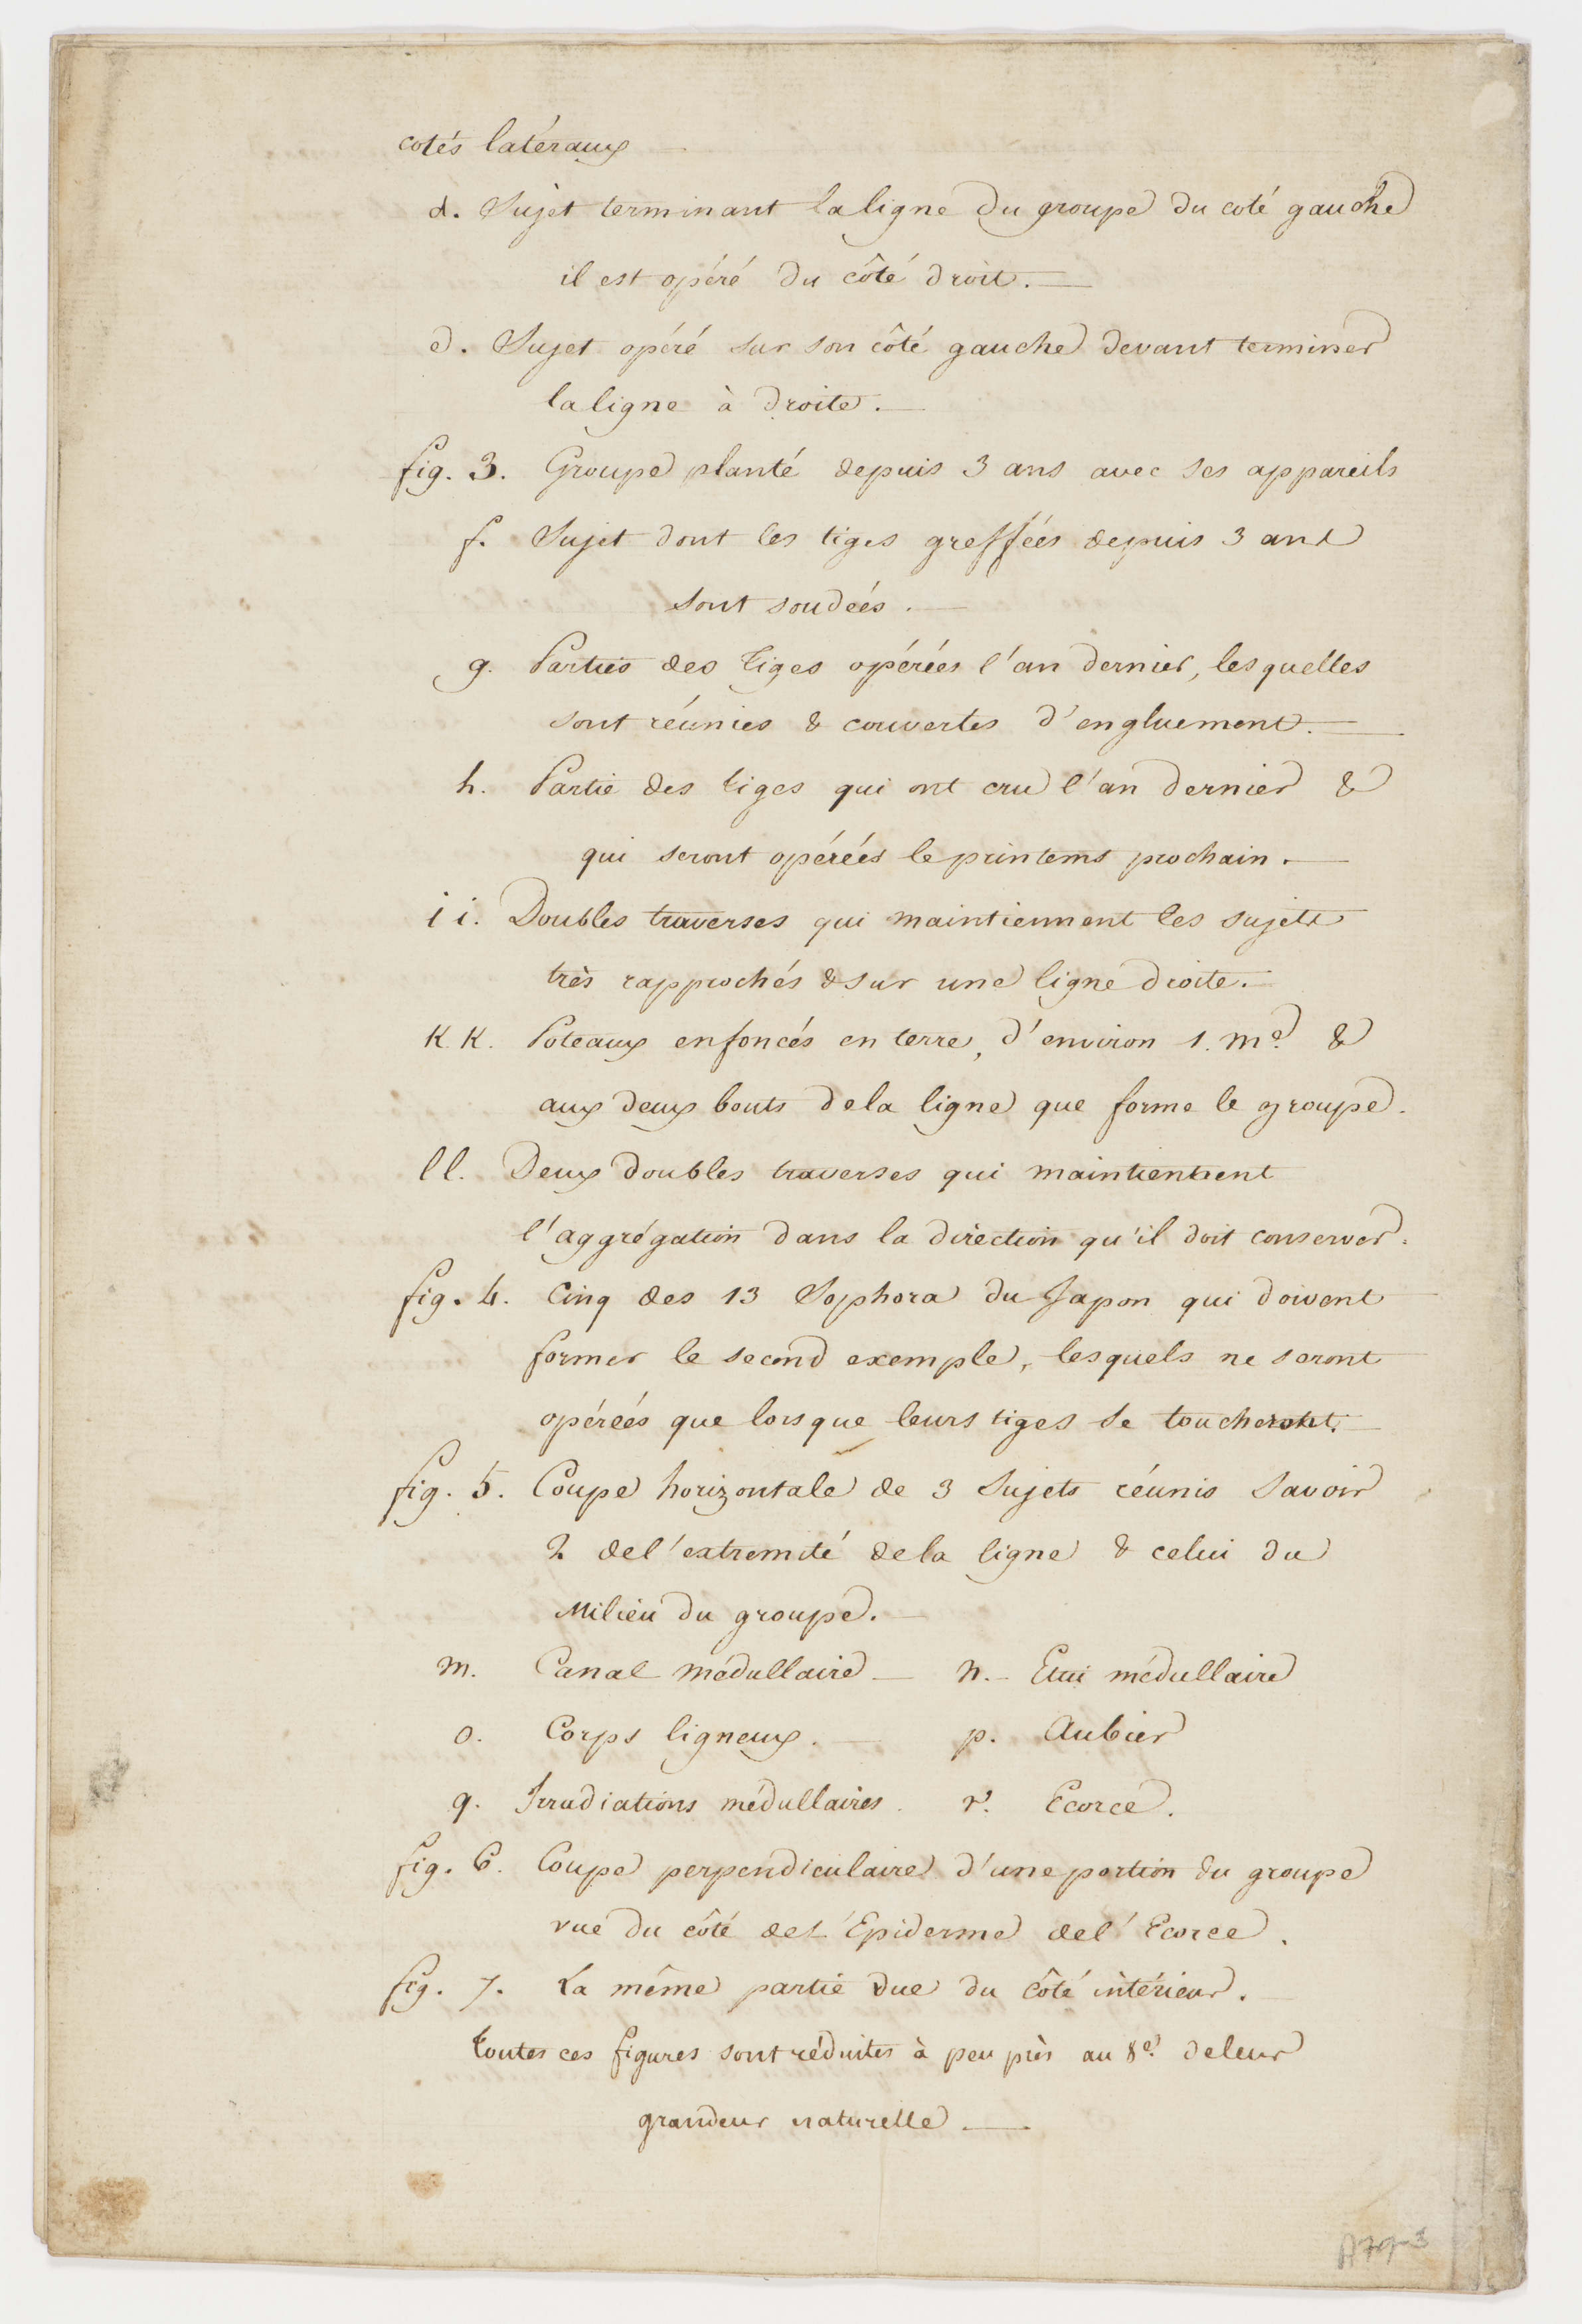 cotés latéraux
d. Sujet terminant la ligne du groupe du coté gauche
il est opéré du côté droit.
e. Sujet opéré sur son côté gauche devant terminer
la ligne à droite.
fig. 3. Groupe planté depuis 3 ans avec ses appareils
f. Sujet dont les tiges greffées depuis 3 ans
sont soudées.
g. Parties des tiges opérées l'an dernier, lesquelles
sont réunies & couvertes d'engluement.
h. Partie des tiges qui ont cru l'an dernier &
qui seront opérées le printems prochain.
i i. Doubles traverses qui maintiennent les sujets
très rapprochés & sur une ligne droite.
K. K. Poteaux enfoncés en terre, d'environ 1. me. &
aux deux bouts de la ligne que forme le groupe.
l l. Deux doubles traverses qui maintiennent
l'aggrégation dans la direction qu'il doit conserver.
fig. 4. Cinq des 13 Sophora du Japon qui doivent
former le second exemple, lesquels ne seront
opérées que lorsque leurs tiges se toucheront.
fig. 5. Coupe horizontale de 3 Sujets réunis Savoir
2 de l'extremité de la ligne & celui du
Milieu du groupe.
m. Canal médullaire — n. — Etui médullaire
o. Corps ligneux. — p. Aubier
q. Irradiations médullaires. r. Ecorce.
fig. 6. Coupe perpendiculaire d'une portion du groupe
vue du côté de l'Epiderme de l'Ecorce.
fig. 7. La même partie vue du côté intérieur.
toutes ces figures sont réduites à peu près au 8e. de leur
grandeur naturelle —